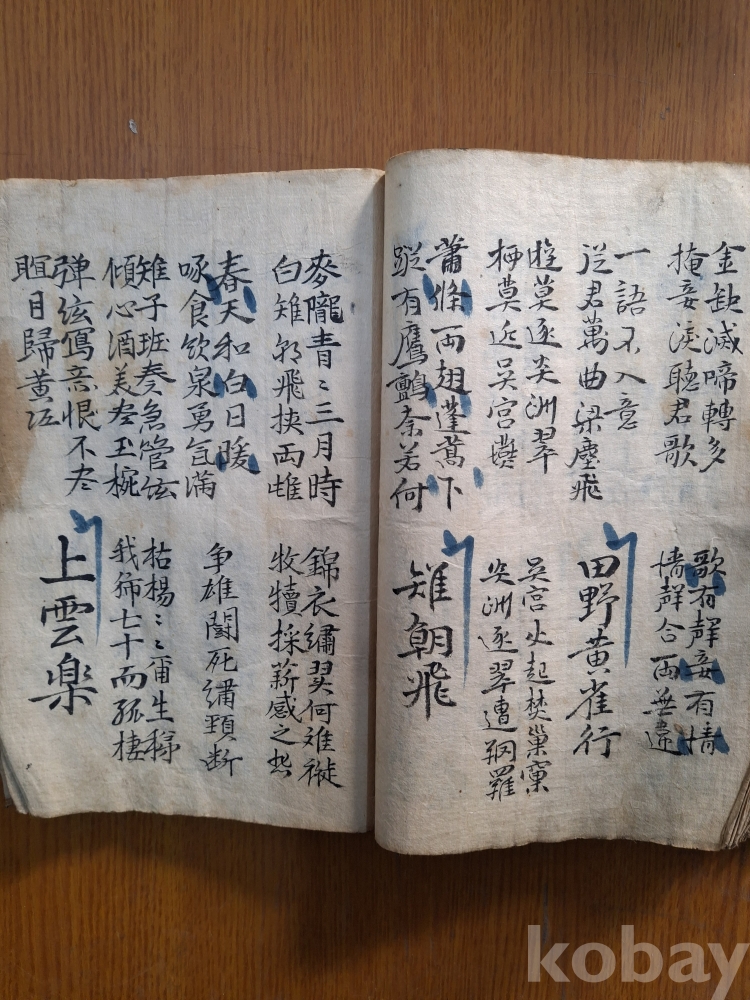 金缸滅啼轉多
掩妾淚聽君歌
歌有聲妾有情
情聲合兩無違
一語不入意
從君萬曲梁塵飛
田野黄雀行
遊莫逐炎洲翠
栖莫近吴宮燕
吴宮火起焚巢窠
炎洲逐翠遭網羅
蕭條兩翅蓬蒿下
蹤有鷹鸇奈若何
雉朝飛
麥隴青〻三月時
白雉朝飛挟兩雌
錦衣繡翼何離褷
牧犢採薪感之悲
春天和白日暖
啄食飲泉勇氣滿
争雄闘死繡頸断
雉子班奏急管弦
傾心酒美尽玉椀
枯楊〻〻爾生稊
我獨七十而孤棲
弹弦寫意恨不尽
瞑目歸黄泥
上雲楽
kobay